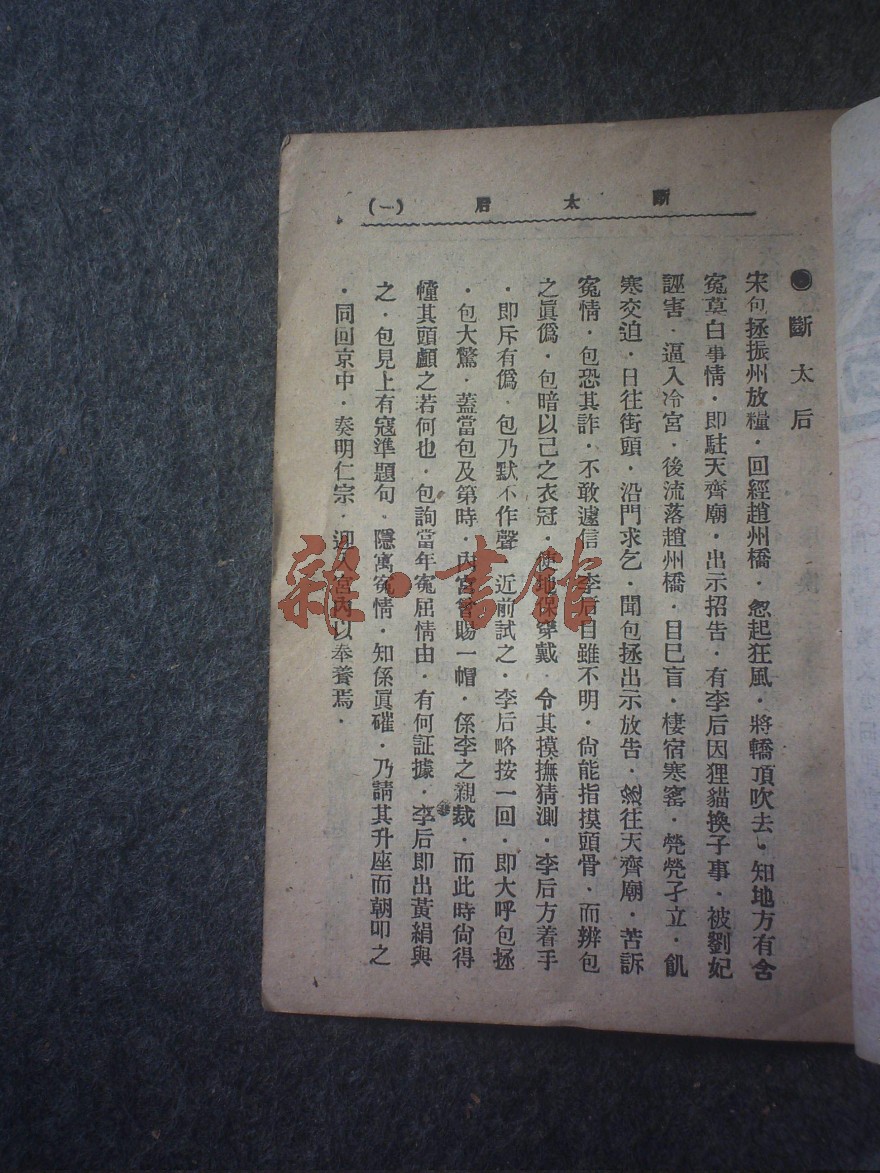 斷太后 (一)
●斷太后
宋包拯振州放糧·回經趙州橋·忽起狂風·將轎頂吹去·知地方有含
冤莫白事情·即駐天齊廟·出示招告·有李后因狸貓換子事·被劉妃
誣害·逼入冷宮·後流落趙州橋·目已盲·棲宿寒窰·煢煢孑立·飢
寒交迫·日往街頭·沿門求乞·聞包拯出示放告·往天齊廟·苦訴
冤情·包恐其詐·不敢遽信·李后目雖不明·尚能指摸頭骨·而辨包
之眞僞·包暗以己之衣冠·使地保穿戴·令其摸撫猜測·李后方着手
·即斥有僞·包乃默不作聲·近前試之·李后略按一回·即大呼包拯
·包大驚·蓋當包及第時·內宮曾賜一帽·係李之親裁·而此時尚得
憧其頭顱之若何也·包詢當年冤屈情由·有何証據·李后即出黃絹與
之·包見上有寇準題句·隱寓冤情·知係眞確·乃請其升座而朝叩之
·同回京中·奏明仁宗·迎入宮內以奉養焉·
雜·書館